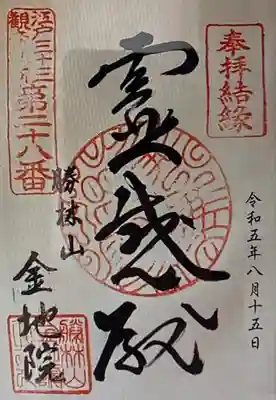 奉拝結縁
令和五年八月十五日
靈感殿
勝林山
金地院
江戸三十三
観音札所
第二十八番